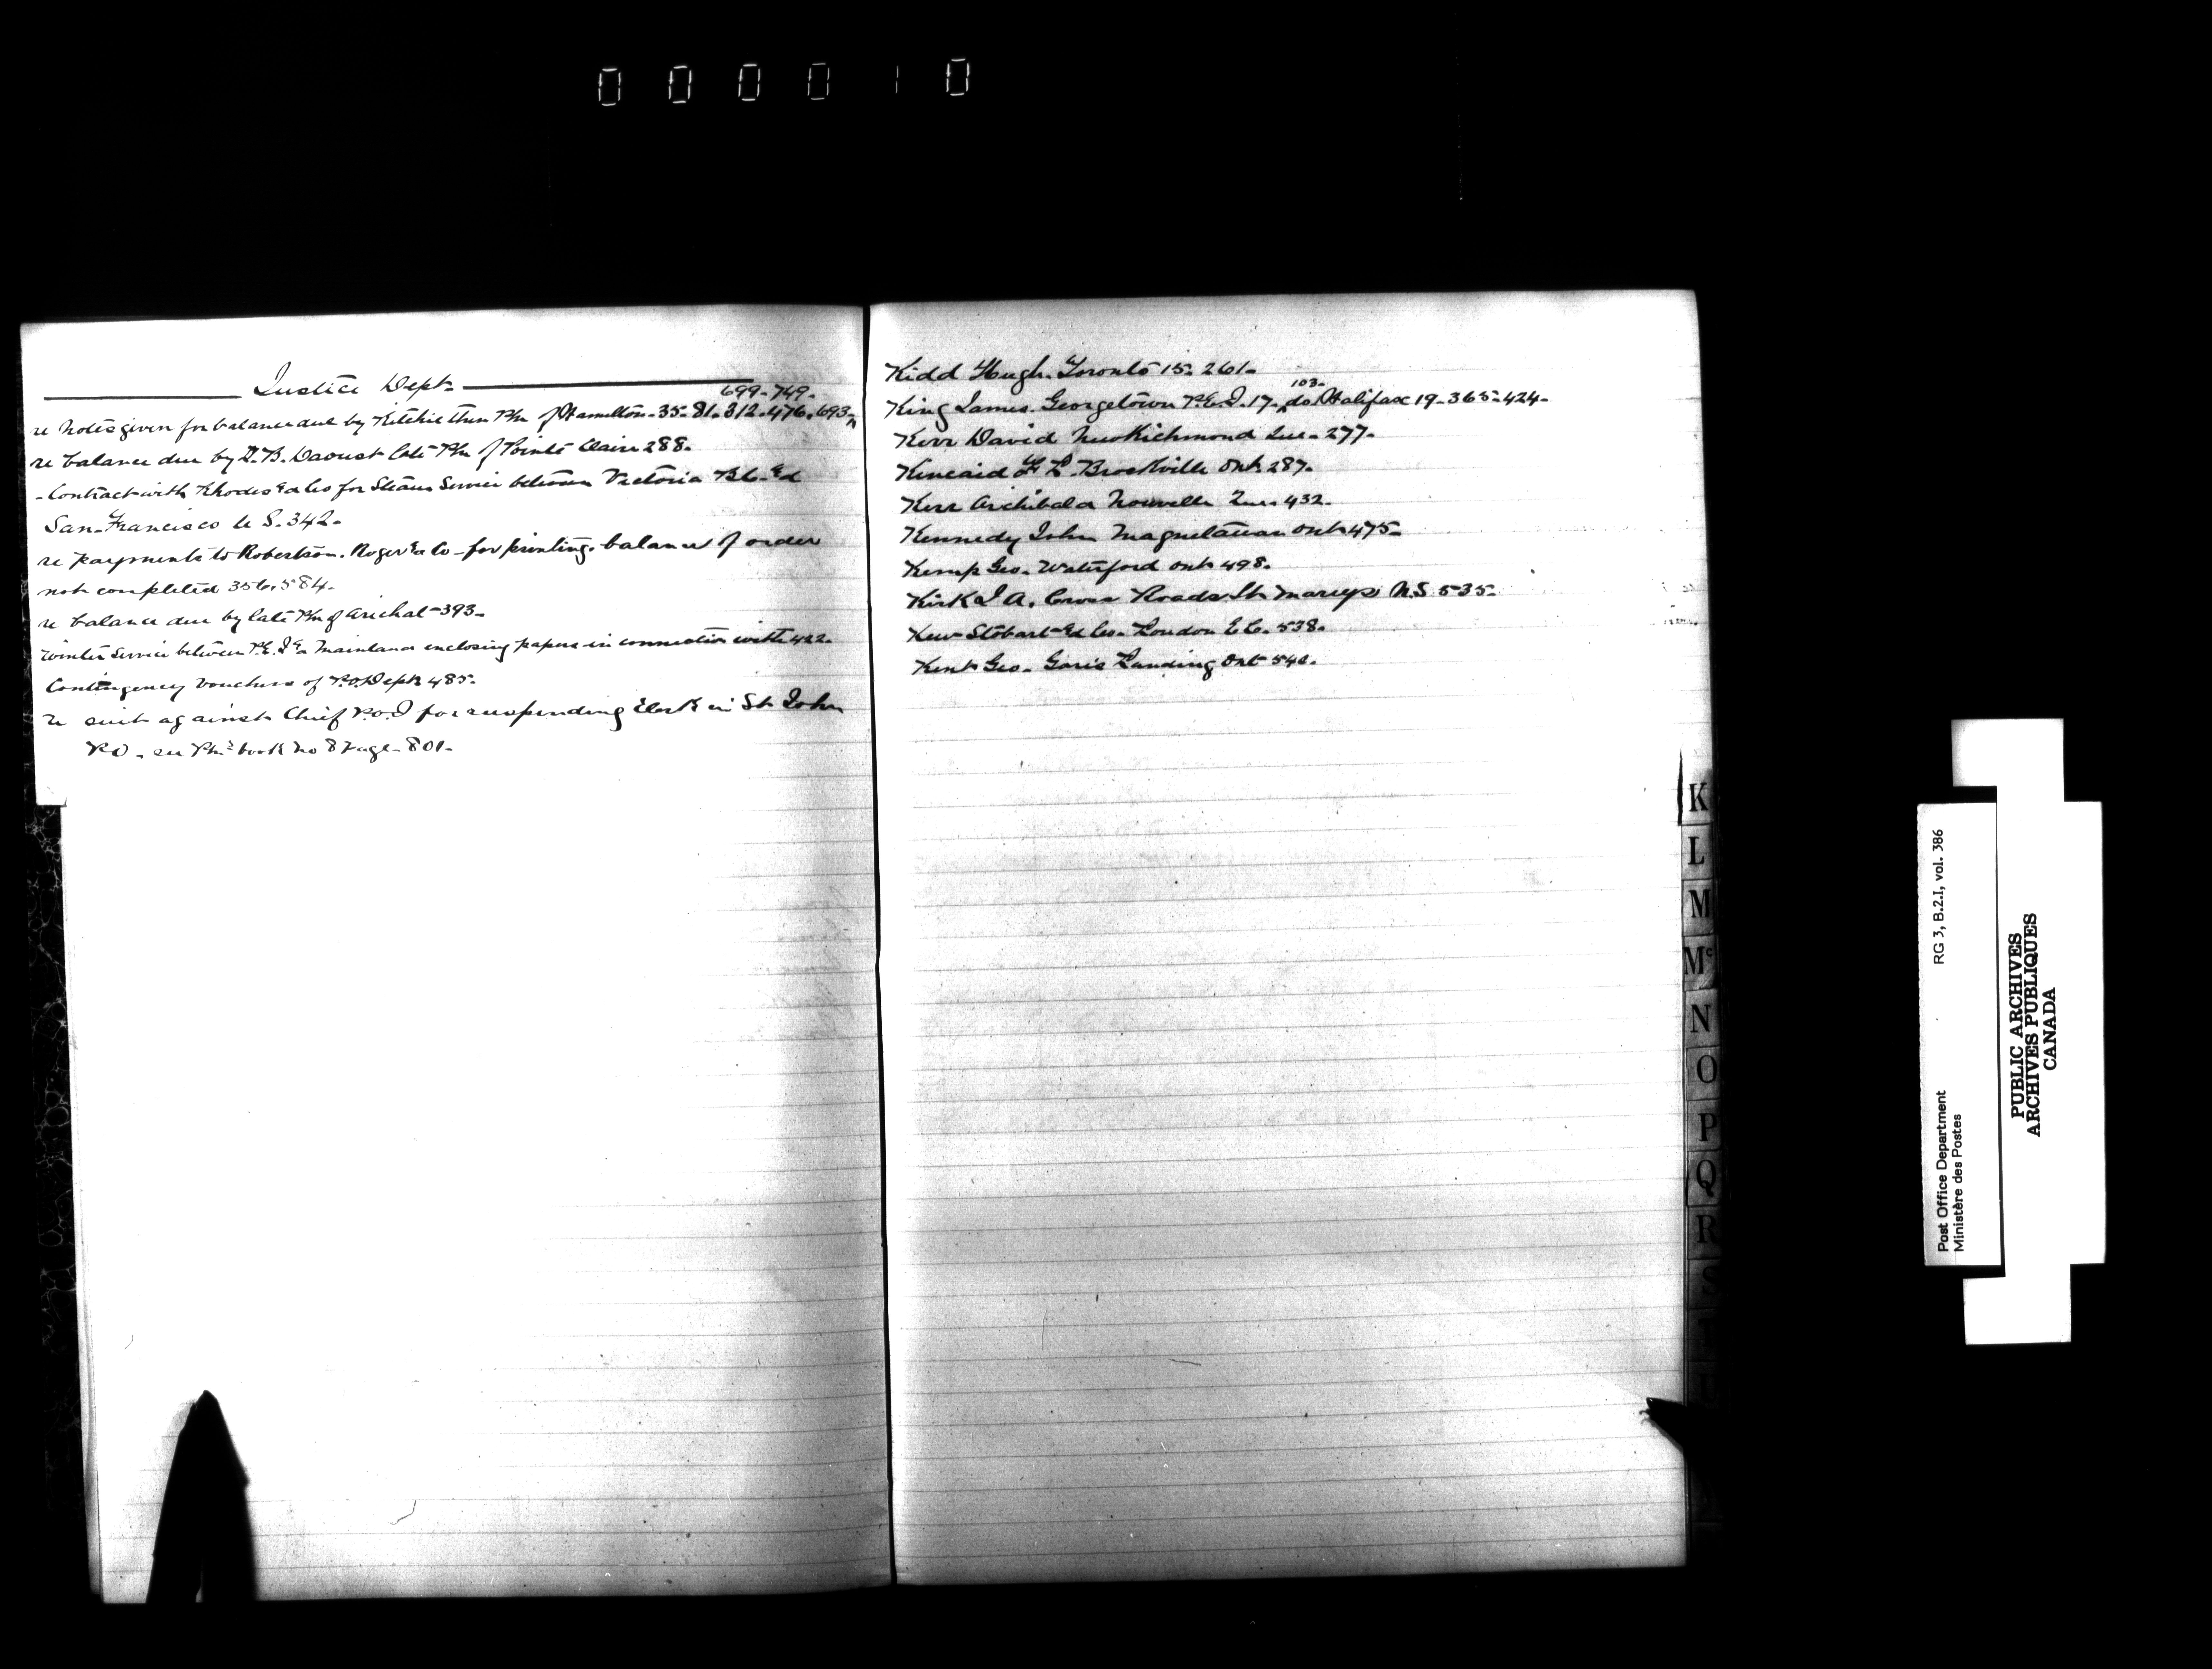 000010
Justice Dept
699-749-
re Notes given for balance due by Ritchie then Pm of Hamilton-35-81-312-476-693-
re balance due by D.B. Daoust late Pm of Pointe Claire 288-
-Contract with Rhodes & Co for Steam Service between Victoria B.C. &
San-Francisco U S. 342-
re payments to Robertson. Roger & Co-for printing-balance of order
not completed 356.584-
re balance due by late Pm of Arichat-393-
Winter Service between P.E.I & Mainland enclosing papers in connection with 422-
Contingency vouchers of P.O. Dept 485-
re suit against Chief P.O.I for suspending Clerk in St John
P.O - see book no 8 Page-801-
Kidd Hugh. Toronto 15-261-
103-
King James. Georgetown P.E.I. 17- do. Halifax 19-365-424-
Kerr David New Richmond Que-277-
Kincaid F L. Brockville Ont. 287-
Kerr Archibald Nouvelle Que. 432-
Kennedy John Magnetawan Ont 475-
Kemp Geo. Waterford Ont 498-
Kirk J A. Cross Roads St Marys N.S. 535-
Kew Stobart & Co. London E C. 538-
Kent Geo. Landing Ont
K
L
M
Mc
N
O
P
Q
R
S
RG 3, B.2.I, vol. 386
Post Office Department
Ministère des Postes
PUBLIC ARCHIVES
ARCHIVES PUBLIQUES
CANADA